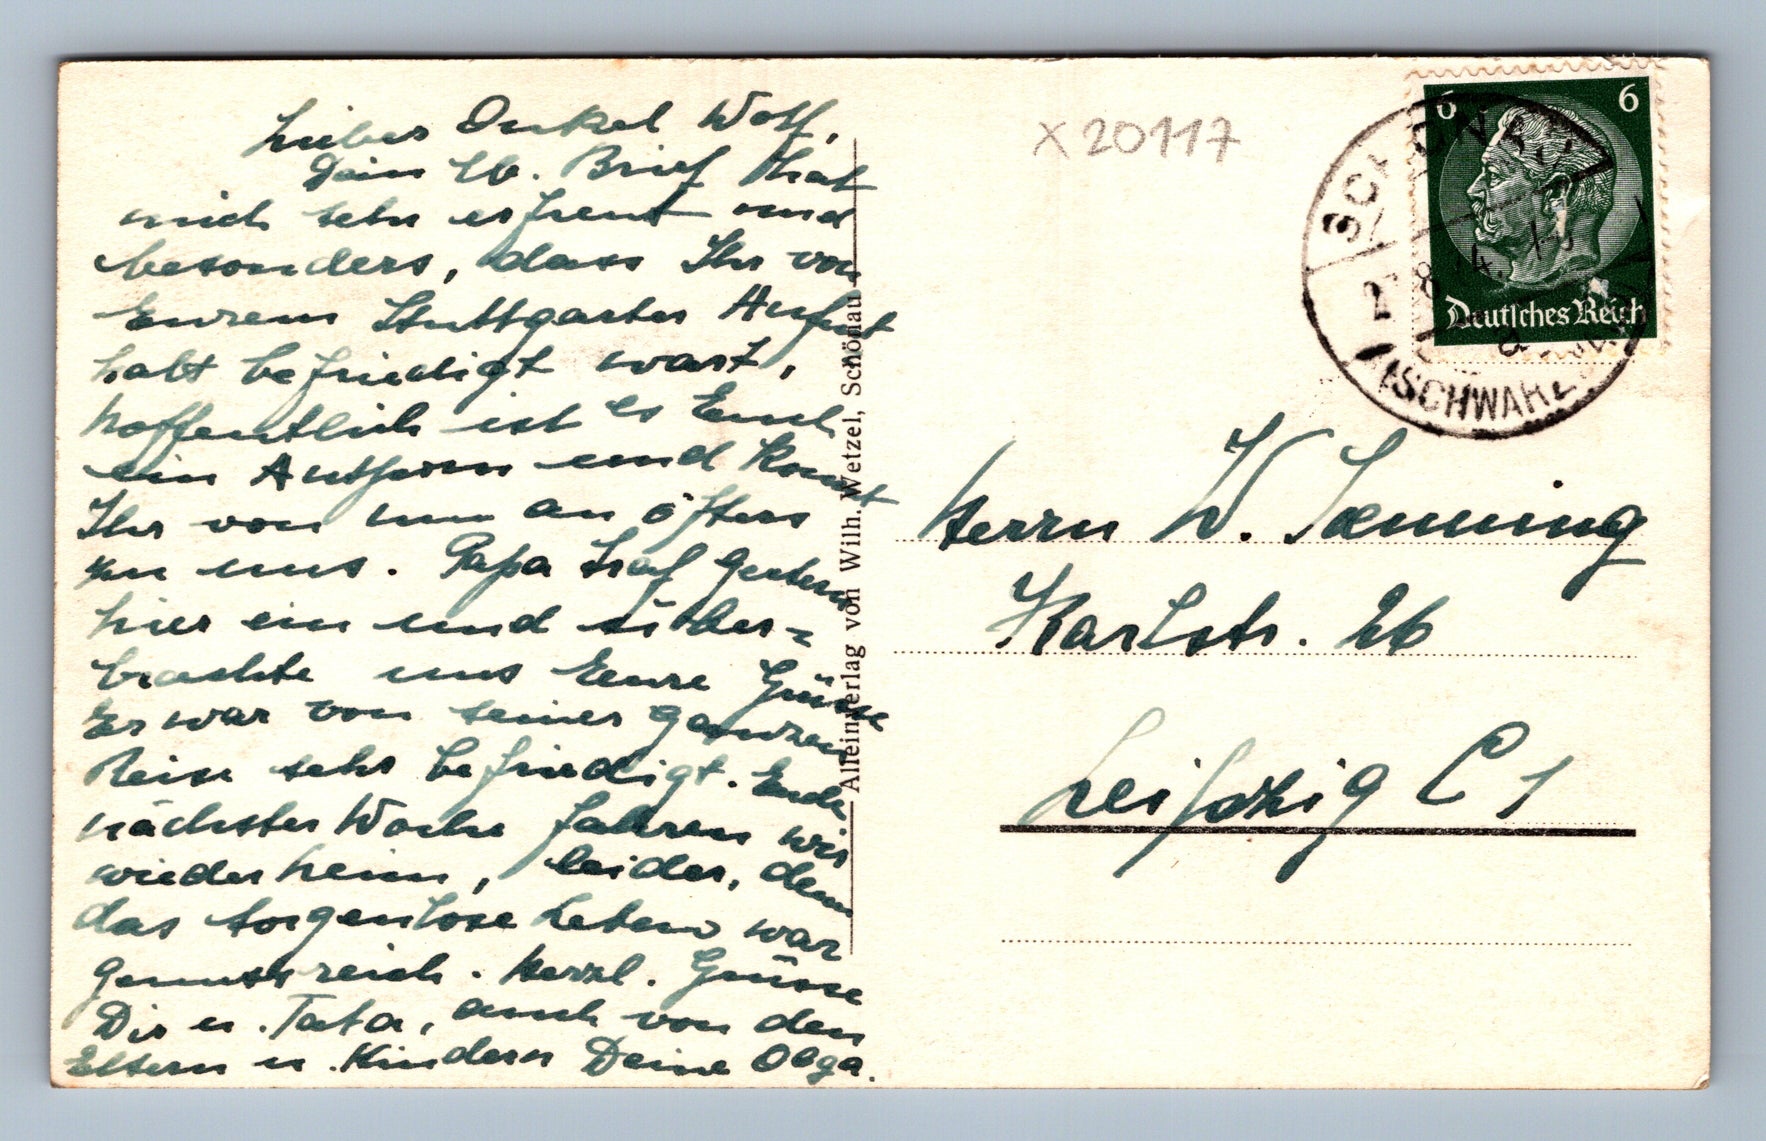 Lieber Onkel Wolf,
Dein lb. Brief hat
mich sehr erfreut und
besonders, dass Ihr von
Eurem Stuttgarter Aufent
halt befriedigt wart,
hoffentlich ist es Euch
ein Ansporn und kommt
Ihr von nun an öfters
zu uns. Papa traf gestern
hier ein und über-
brachte uns Eure Grüsse
Er war von seiner ganzen
Reise sehr befriedigt. Ende
nächster Woche fahren wir
wieder heim, leider, denn
das sorgenlose Leben war
genussreich. Herzl. Grüsse
Dir u. Tata, auch von den
Eltern u. Kindern Deine Olga.
Alleinverlag von Wilh. Wetzel, Schönau
X 20117
6 6
Deutsches Reich
SCHÖNAU
(SCHWARZ
Herrn W.
Karlstr. 26
Leipzig C 1